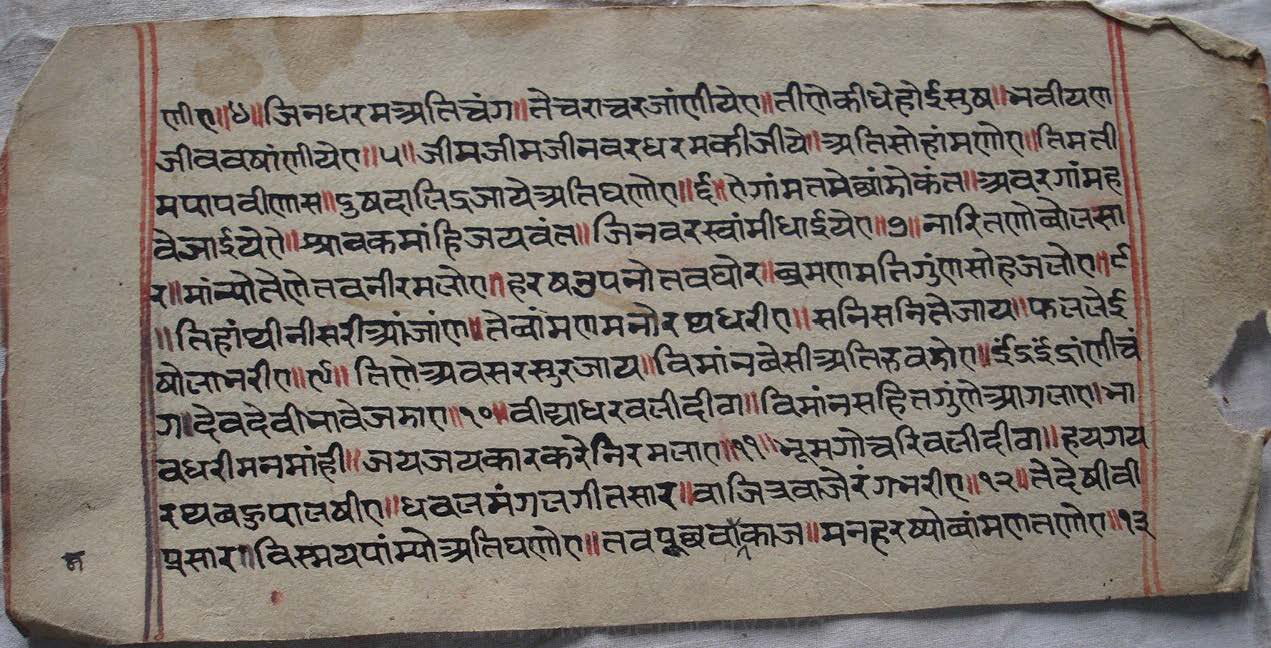 णीए॥४॥जिनधरमअतिचंग॥तेचराचरजांणीयेए॥तीणेकीधेहोईसुष॥भवीयण
जीववषांणीयेए॥५॥जीमजीमजीनवरधरमकीजीये॥अतिसोहांमणोए॥तिमती
मपापवीणास॥दुषदालिद्रजायेअतिघणोए॥६॥ अवरगांमह
वेजाईयेऐ॥श्रावकमांहिजयवंत॥जिनवरस्वांमीधाईयेए॥७॥नारितणोबोलसा
र॥मांन्योतेणेतवनीरमलोए॥हरषउपनोतवघोर॥ब्रमणमतिगुंणसोहजलोए॥८
॥तिहांथीनीसरीआंजांण॥तेबांमणमनोरथधरीए॥सनिसनितेजाय॥फललेई
षोलाभरीए॥९॥तिणेअवसरसुरजाय॥विमांनबेसीअतिरुवडोए॥
ग॥देवदेवीभावेजडाए॥१०॥वीद्याधरवलीदीवा॥विमांनसहितगुंणेआगलाए।भा
वधरीमनमांही॥जयजयकारकरेनिरमलाए॥११॥भूमगोचरिवलीदीवा॥हयगय
रथबहुपालषीए॥धवलमंगलगीतसार॥वाजित्रवाजेरंगभरीए॥१२॥तेदेषीवी
प्रसार॥विस्मयपांम्योअतिघणोए॥तवपूछवाकाज॥मनहरष्योबांमणतणोए॥१३